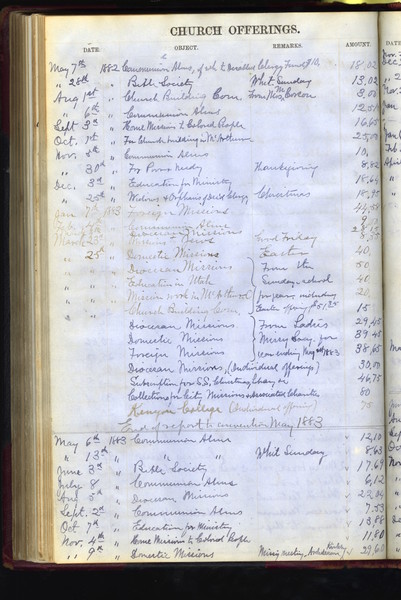 CHURCH OFFERINGS.
DATE. OBJECT. REMARKS. AMOUNT.
May 7th 1882 Communion Alms, of wh to Clergy Fund 18,02
" 28th " Bible Society Whit Sunday 13,02
Aug 1st " Church Building Com. From Mrs 3,00
" 6th " Communion Alms 12,51
Sept 3d " Home Missions to Colored People 16,65
Oct. 1st " For Church building in McArthur 25,00
Nov. 5th " Communion Alms 10,
" 30th " For Poor & Needy Thanksgiving 8,82
Dec. 3d " Education for Ministry 18,
" 25th " Widows & Orphans of Decd. Clergy Christmas 18,
Jan 7th 1883 Foreign Missions 44,
" Communion Alms
" Diocesan Missions
March " Missions to Jews Good Friday
" 25th " Domestic Missions Easter 40,
" " Diocesan Missions From the 50
" " Education in Utah Sunday School 40
" " Mission work in McArthur for year, including 20,
" " Church Building Com. Easter offerings $51,25 15
Diocesan Missions From Ladies 29,45
Domestic Missions Mercy Soc'y for 39,40
Foreign Missions year ending May 1883 38,65
Diocesan Missions, (Individual offerings) 30,00
Subscription for S.S. 46,75
Collections for City Missions & Associated Charities 80
Kenyon College (Individual offerings) 75
End of report to convention May 1883
May 6th 1883 Communion Alms 12,10
" 13th " " " Whit Sunday 8,63
June 3d " Bible Society 17,69
July 8 " Communion Alms 6,12
Aug 5th " Diocesan Missions 22,04
Sept. 2d " Communion Alms 7,53
Oct 7th " Education for Ministry 13,88
Nov. 4th " Home Missions to Colored People 11,80
" 9th " Domestic Missions Missy meeting, Archdeacon Kirkby 29,6